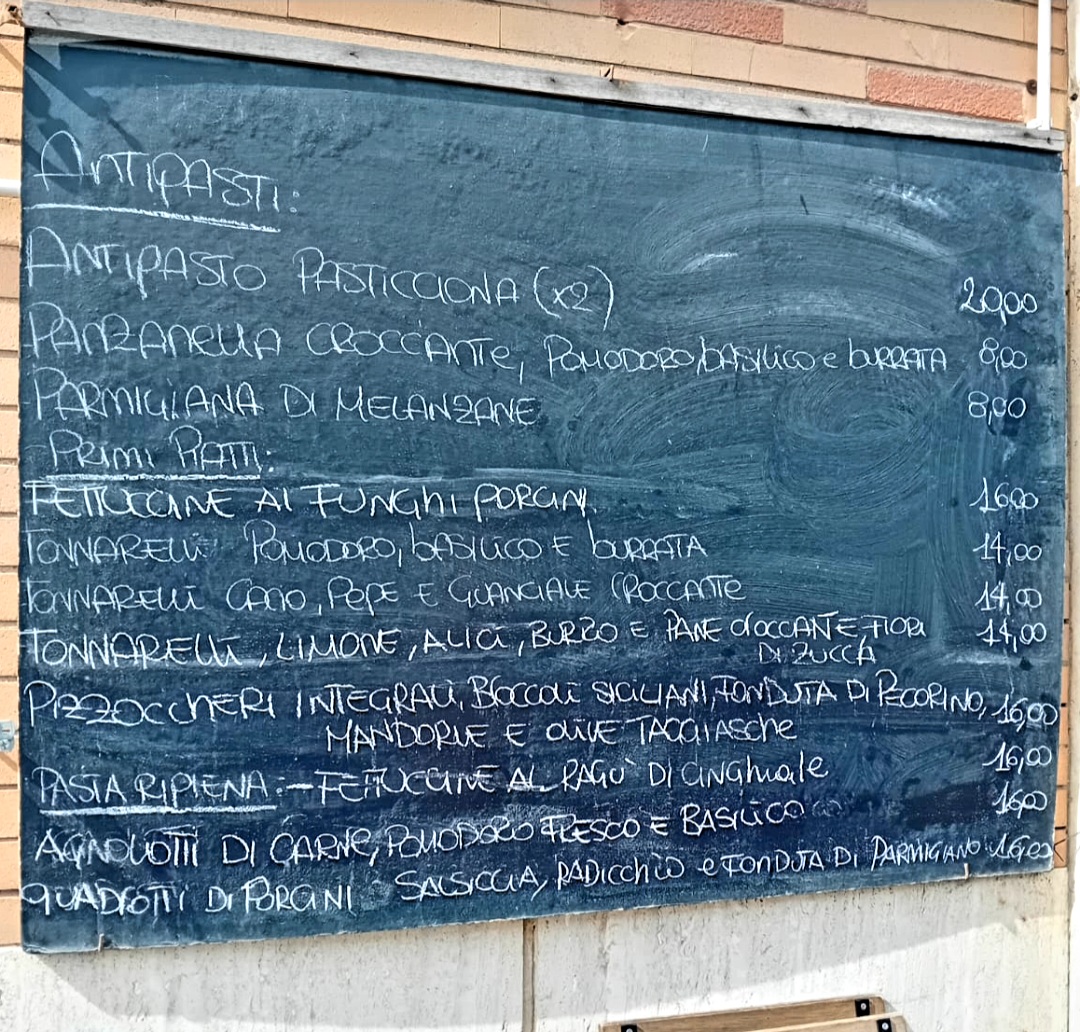 ANTIPASTI:
ANTIPASTO PASTICCIONA (x2) 20,00
PANZANELLA CROCCANTE, POMODORO, BASILICO e BURRATA 8,00
PARMIGIANA DI MELANZANE 8,00
PRIMI PIATTI:
FETTUCCINE AI FUNGHI PORCINI 16,00
TONNARELLI POMODORO, BASILICO E BURRATA 14,00
TONNARELLI CACIO, PEPE E GUANCIALE CROCCANTE 14,00
TONNARELLI, LIMONE, ALICI, BURRO E PANE CROCCANTE, FIORI 14,00
DI ZUCCA
PIZZOCCHERI INTEGRALI, BROCCOLI SICILIANI, FONDUTA DI PECORINO, 16,00
MANDORLE E OLIVE TAGGIASCHE
PASTA RIPIENA: - FETTUCCINE AL RAGU' DI CINGHIALE 16,00
AGNOLOTTI DI CARNE, POMODORO FRESCO E BASILICO 16,00
QUADROTTI DI PORCINI SALSICCIA, RADICCHIO e FONDUTA DI PARMIGIANO 16,00